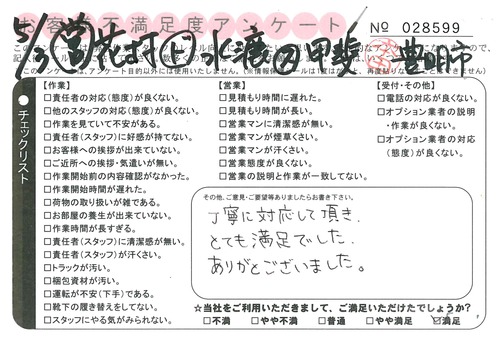 お客様不満足度アンケート
No 028599
5/3
豊明市
チェックリスト
【作業】
□責任者の対応（態度）が良くない。
□他のスタッフの対応（態度）が良くない。
□作業を見ていて不安がある。
□責任者（スタッフ）に好感が持てない。
□お客様への挨拶が出来ていない。
□ご近所への挨拶・気遣いが無い。
□作業開始前の内容確認がなかった。
□作業開始時間が遅れた。
□荷物の取り扱いが雑である。
□お部屋の養生が出来ていない。
□作業時間が長すぎる。
□責任者（スタッフ）に清潔感が無い。
□責任者（スタッフ）が汗くさい。
□トラックが汚い。
□梱包資材が汚い。
□運転が不安（下手）である。
□靴下の履き替えをしてない。
□スタッフにやる気がみられない。
【営業】
□見積もり時間に遅れた。
□見積もり時間が長い。
□営業マンに清潔感が無い。
□営業マンが煙草くさい。
□営業マンが汗くさい。
□営業態度が良くない。
□営業の説明と作業が一致してない。
【受付・その他】
□電話の対応が良くない。
□オプション業者の説明
・作業が良くない。
□オプション業者の対応
（態度）が良くない。
その他、ご意見・ご要望等ありましたらお書き下さい。
丁寧に対応して頂き、
とても満足でした。
ありがとございました。
☆当社をご利用いただきまして、ご満足いただけたでしょうか？
□不満 □やや不満 □普通 □やや満足 ☑満足